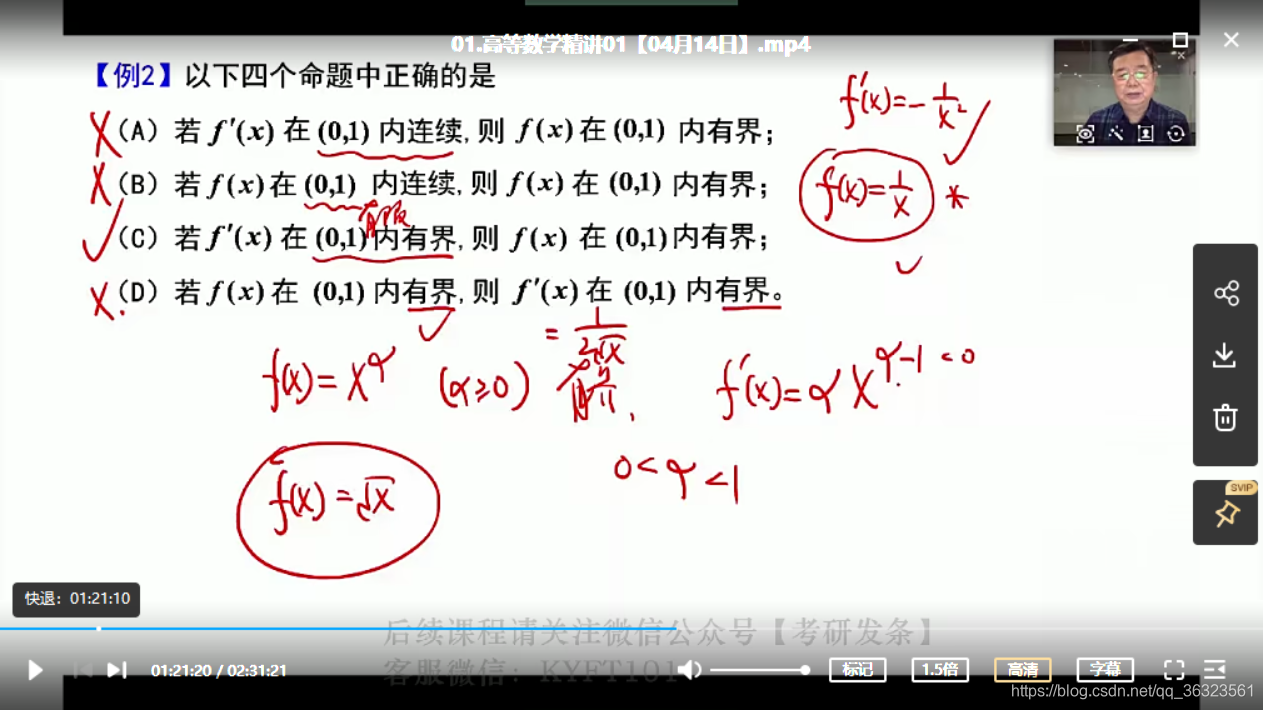 01.高等数学精讲01【04月14日】.mp4
【例2】以下四个命题中正确的是
f'(x)=-1/x² ✓
X (A) 若 f'(x) 在 (0,1) 内连续, 则 f(x) 在 (0,1) 内有界;
X (B) 若 f(x) 在 (0,1) 内连续, 则 f(x) 在 (0,1) 内有界;
f(x)=1/x *
有限
✓ (C) 若 f'(x) 在 (0,1) 内有界, 则 f(x) 在 (0,1) 内有界;
X. (D) 若 f(x) 在 (0,1) 内有界, 则 f'(x) 在 (0,1) 内有界。
= 1/2√x
f(x)=x^α (α≥0) 有界, f'(x)=αx^α-1 <0
f(x)=√x
0<α<1
SVIP
快退：01:21:10
后续课程请关注微信公众号【考研发条】
客服微信：KYFT101
01:21:20 / 02:31:21
标记
1.5倍
高清
字幕
https://blog.csdn.net/qq_36323561